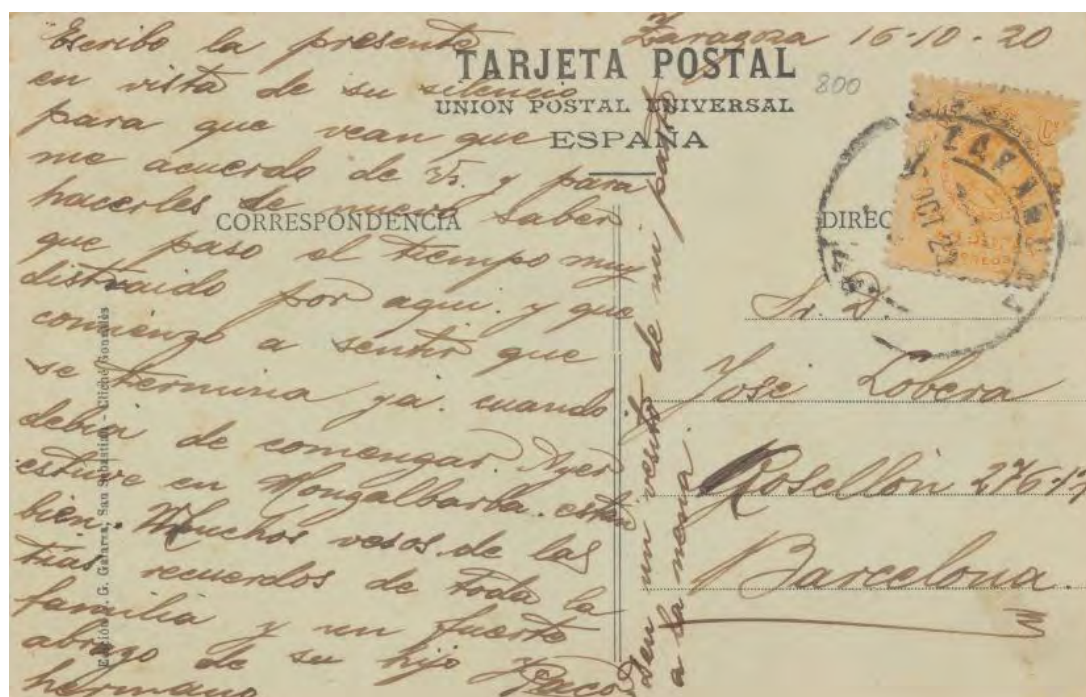 Escribo la presente
en vista de su silencio
para que vean que
me acuerdo de Vs. y para
hacerles de nuevo saber
que paso el tiempo muy
distraido por aqui. y que
comienzo a sentir que
se termina ya. cuando
debia de comenzar. Ayer
estuve en Monzalbarba. estan
bien. Muchos vesos de las
tias recuerdos de toda la
familia y un fuerte
abrazo de su hijo y
hermano Paco
Den un vesito de mi parte
a la nena.
Zaragoza 16-10-20
TARJETA POSTAL
UNION POSTAL UNIVERSAL
ESPAÑA
800
CORRESPONDENCIA
DIREC
Sr. D.
José Lobera
Rosellón 276-1º
Barcelona.
Edición J. G. Galarza, San Sebastián - Cliché González